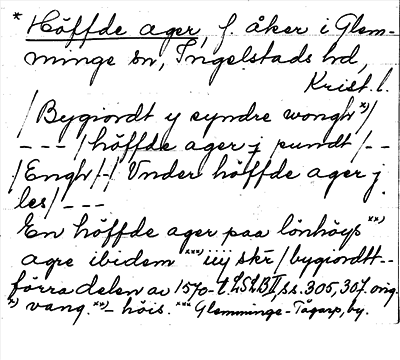 * Höffde ager, f. åker i Glem-
minge sn, Ingelstads hd,
Krist. l.
/Bygiordt y syndre wongh *)/
- - - /höffde ager j pundt/ - -
/Engh/-/ Vnder höffde ager j
les/ - - -
En höffde ager paa lönhöys **)
agre ibidem ***) iiij skr/ bygiordt--
förra delen av 1570-t. LSLB II, ss. 305, 307. orig.
*) vang. **) - höis. *** Glemminge-Tågarp, by.